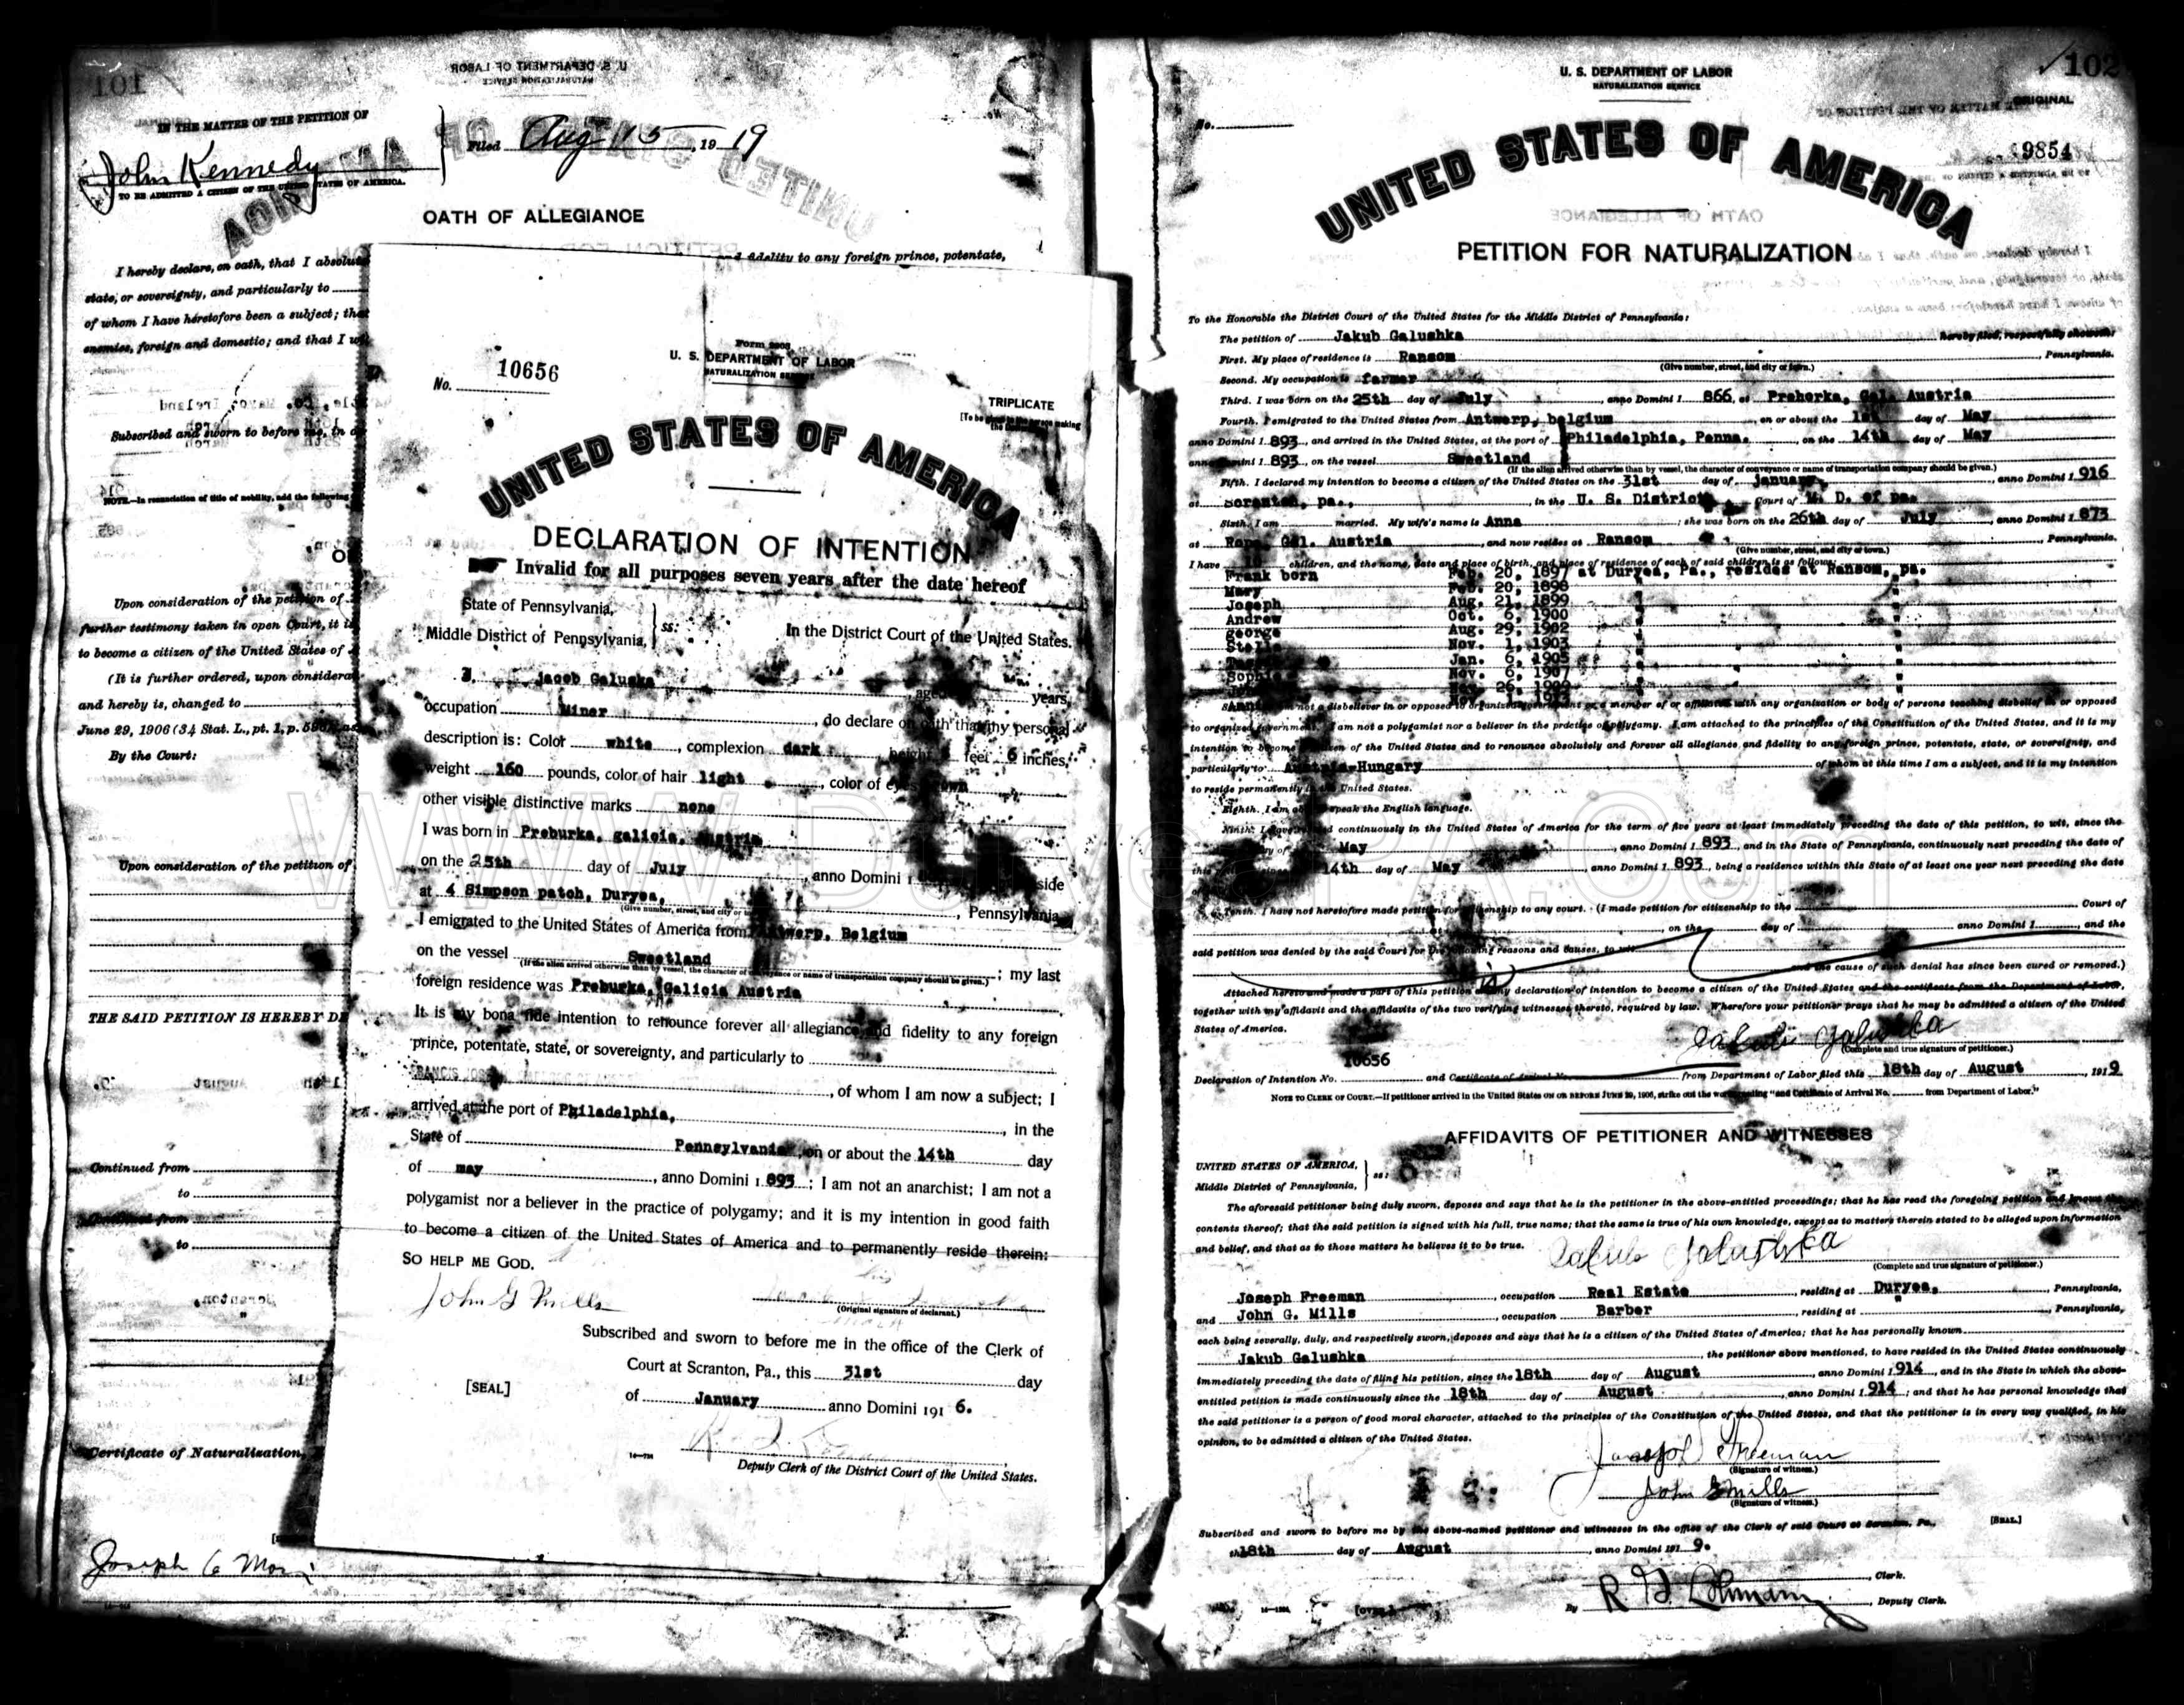 101
IN THE MATTER OF THE PETITION OF
John Kennedy
TO BE ADMITTED A CITIZEN OF THE UNITED STATES OF AMERICA.
Filed Aug 15, 1919
OATH OF ALLEGIANCE
I hereby declare, on oath, that I absolut
and fidelity to any foreign prince, potentate,
state, or sovereignty, and particularly to
of whom I have heretofore been a subject; tha
enemies, foreign and domestic; and that I w
Subscribed and sworn to before me, in
NOTE.—In renunciation of title of nobility, add the following
Upon consideration of the petition of
further testimony taken in open Court, it is
to become a citizen of the United States of
(It is further ordered, upon considera
and hereby is, changed to
June 29, 1906 (34 Stat. L., pt. 1, p.
By the Court:
Upon consideration of the petition of
THE SAID PETITION IS HEREBY DE
Continued from
to
Continued from
to
Certificate of Naturalization,
Joseph C
No. 10656
Form 2203
U. S. DEPARTMENT OF LABOR
NATURALIZATION SERVICE
TRIPLICATE
UNITED STATES OF AMERICA
DECLARATION OF INTENTION
Invalid for all purposes seven years after the date hereof
State of Pennsylvania,
Middle District of Pennsylvania, ss:
In the District Court of the United States.
I, jacob Galuska, aged years,
occupation Miner, do declare on oath that my personal
description is: Color white, complexion dark, height feet 6 inches,
weight 160 pounds, color of hair light, color of eyes
other visible distinctive marks none
I was born in Preburka, galicia, Austria
on the 25th day of July, anno Domini 1 side
at 4 Simpson patch, Duryea, Pennsylvania
(Give number, street, and city or
I emigrated to the United States of America from Antwerp, Belgium
on the vessel Sweetland; my last
(If the alien arrived otherwise than by vessel, the character of conveyance or name of transportation company should be given.)
foreign residence was Preburka, Galicia Austria
It is my bona fide intention to renounce forever all allegiance and fidelity to any foreign
prince, potentate, state, or sovereignty, and particularly to
, of whom I am now a subject; I
arrived at the port of Philadelphia, in the
State of Pennsylvania, on or about the 14th day
of may, anno Domini 1 893; I am not an anarchist; I am not a
polygamist nor a believer in the practice of polygamy; and it is my intention in good faith
to become a citizen of the United States of America and to permanently reside therein:
SO HELP ME GOD.
John G Mills
(Original signature of declarant.)
Subscribed and sworn to before me in the office of the Clerk of
Court at Scranton, Pa., this 31st day
[SEAL]
of January anno Domini 191 6.
Deputy Clerk of the District Court of the United States.
102
U. S. DEPARTMENT OF LABOR
NATURALIZATION SERVICE
ORIGINAL
No.
9854
UNITED STATES OF AMERICA
PETITION FOR NATURALIZATION
To the Honorable the District Court of the United States for the Middle District of Pennsylvania:
The petition of Jakub Galushka hereby filed, respectfully showeth:
First. My place of residence is Ransom, Pennsylvania.
(Give number, street, and city or town.)
Second. My occupation is farmer
Third. I was born on the 25th day of July, anno Domini 1 866, at Prehorka, Gal. Austria
Fourth. I emigrated to the United States from Antwerp, belgium on or about the 1st day of May
anno Domini 1 893, and arrived in the United States, at the port of Philadelphia, Penna. on the 14th day of May
anno Domini 1 893, on the vessel Sweetland
(If the alien arrived otherwise than by vessel, the character of conveyance or name of transportation company should be given.)
Fifth. I declared my intention to become a citizen of the United States on the 31st day of january, anno Domini 1 916
at Scranton, pa., in the U. S. District Court of M. D. of pa.
Sixth. I am married. My wife's name is Anna; she was born on the 26th day of July, anno Domini 1 873
at Ropa, Gal. Austria, and now resides at Ransom, Pennsylvania.
(Give number, street, and city or town.)
I have 10 children, and the name, date and place of birth, and place of residence of each of said children is as follows:
Frank born Feb. 20, 1897 at Duryea, Pa., resides at Ransom, pa.
Mary Feb. 20, 1898 " "
Joseph Aug. 21, 1899
Andrew Oct. 6, 1900 " "
george Aug. 29, 1902
Stella Nov. 1, 1903 " "
Jan. 6, 1905
Sophie Nov. 6, 1907 " "
26, 1909
not a disbeliever in or opposed to organized government or a member of or affiliated with any organization or body of persons teaching disbelief in or opposed
to organized government. I am not a polygamist nor a believer in the practice of polygamy. I am attached to the principles of the Constitution of the United States, and it is my
intention to become a citizen of the United States and to renounce absolutely and forever all allegiance and fidelity to any foreign prince, potentate, state, or sovereignty, and
particularly to Austria-Hungary of whom at this time I am a subject, and it is my intention
to reside permanently in the United States.
Eighth. I am able to speak the English language.
Ninth. I have resided continuously in the United States of America for the term of five years at least immediately preceding the date of this petition, to wit, since the
day of May, anno Domini 1 893, and in the State of Pennsylvania, continuously next preceding the date of
14th day of May, anno Domini 1 893, being a residence within this State of at least one year next preceding the date
Tenth. I have not heretofore made petition for citizenship to any court. (I made petition for citizenship to the Court of
at, on the day of anno Domini 1, and the
said petition was denied by the said Court for the following reasons and causes, to wit
and the cause of such denial has since been cured or removed.)
Attached hereto and made a part of this petition is my declaration of intention to become a citizen of the United States and the certificate from the Department of Labor,
together with my affidavit and the affidavits of the two verifying witnesses thereto, required by law. Wherefore your petitioner prays that he may be admitted a citizen of the United
States of America.
Jakub Galushka
(Complete and true signature of petitioner.)
Declaration of Intention No. 10656 and Certificate of Arrival No. from Department of Labor filed this 18th day of August, 191 9
NOTE TO CLERK OF COURT.—If petitioner arrived in the United States ON OR BEFORE JUNE 29, 1906, strike out the words reading "and Certificate of Arrival No. from Department of Labor."
AFFIDAVITS OF PETITIONER AND WITNESSES
UNITED STATES OF AMERICA,
Middle District of Pennsylvania, ss:
The aforesaid petitioner being duly sworn, deposes and says that he is the petitioner in the above-entitled proceedings; that he has read the foregoing petition and knows the
contents thereof; that the said petition is signed with his full, true name; that the same is true of his own knowledge, except as to matters therein stated to be alleged upon information
and belief, and that as to those matters he believes it to be true.
Jakub Galushka
(Complete and true signature of petitioner.)
Joseph Freeman, occupation Real Estate, residing at Duryea, Pennsylvania,
and John G. Mills, occupation Barber residing at ", Pennsylvania,
each being severally, duly, and respectively sworn, deposes and says that he is a citizen of the United States of America; that he has personally known
Jakub Galushka, the petitioner above mentioned, to have resided in the United States continuously
immediately preceding the date of filing his petition, since the 18th day of August anno Domini 1 914, and in the State in which the above-
entitled petition is made continuously since the 18th day of August, anno Domini 1 914; and that he has personal knowledge that
the said petitioner is a person of good moral character, attached to the principles of the Constitution of the United States, and that the petitioner is in every way qualified, in his
opinion, to be admitted a citizen of the United States.
Joseph Freeman
(Signature of witness.)
John G Mills
(Signature of witness.)
Subscribed and sworn to before me by the above-named petitioner and witnesses in the office of the Clerk of said Court at Scranton, Pa.,
[SEAL.]
th 18th day of August, anno Domini 191 9.
, Clerk.
By R. G., Deputy Clerk.
www.DuryeaPA.com